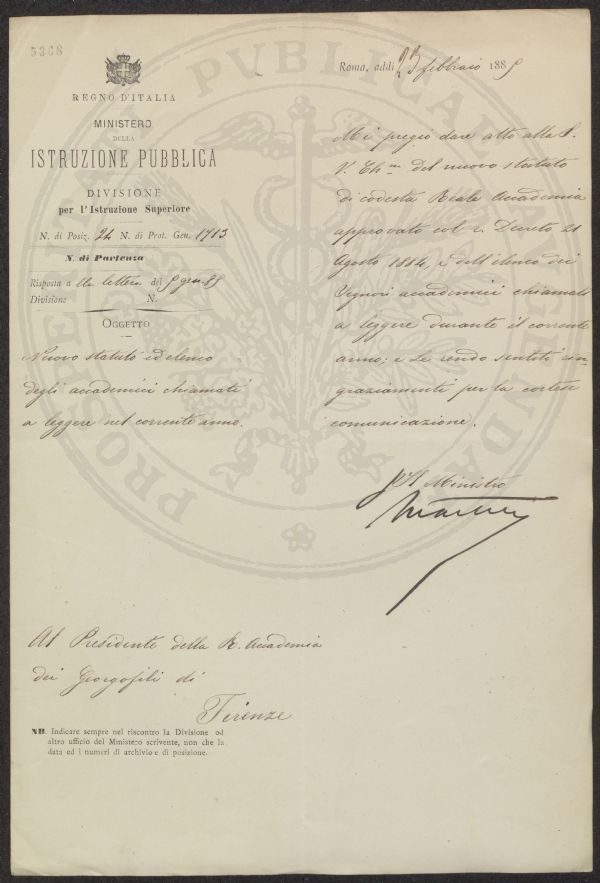 5368
REGNO D'ITALIA
MINISTERO
DELLA
ISTRUZIONE PUBBLICA
DIVISIONE
per l'Istruzione Superiore
N. di Posiz. 24 N. di Prot. Gen. 1713
N. di Partenza
Risposta a lla lettera del 5 gen. 85
Divisione N.
OGGETTO
Nuovo statuto ed elenco
degli accademici chiamati
a leggere nel corrente anno.
Roma, addì 23 febbraio 1885
Mi pregio dare atto alla S.
V. Ill.ma del nuovo statuto
di codesta Reale Accademia
approvato col R. Decreto 21
Agosto 1884, e dell'elenco dei
Signori accademici chiamati
a leggere durante il corrente
anno; e Le rendo sentiti rin-
graziamenti per la cortese
comunicazione.
Pel Ministro
Al Presidente della R. Accademia
dei Georgofili di
Firenze
NB. Indicare sempre nel riscontro la Divisione od
altro ufficio del Ministero scrivente, non che la
data ed i numeri di archivio e di posizione.